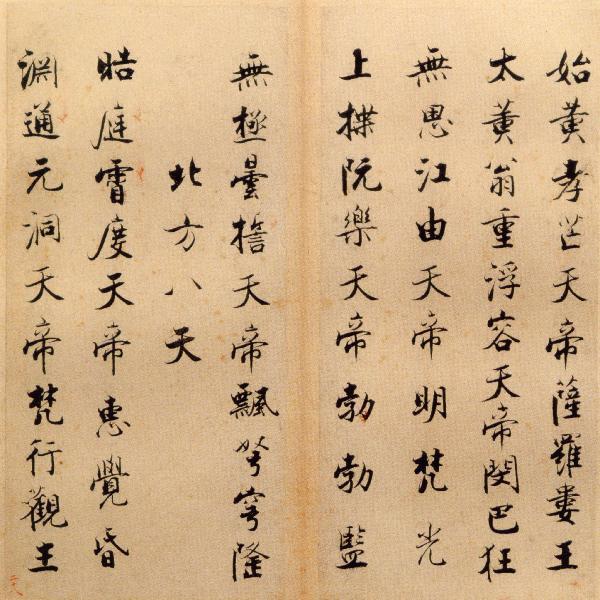 始黃孝芒天帝薩羅婁王
太黃翁重浮容天帝閔巴狂
無思江由天帝明梵光
上揲阮樂天帝勃勃監
無極曇誓天帝飄弩穹隆
北方八天
皓庭霄度天帝惠覺昏
淵通元洞天帝梵行觀主